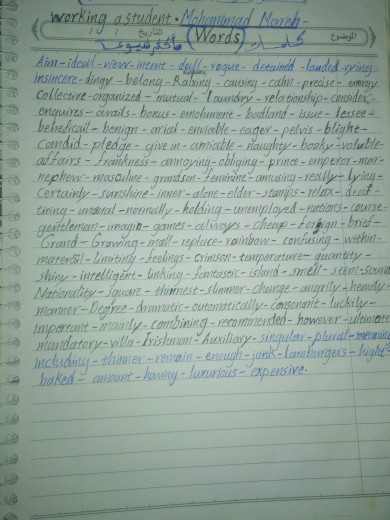 working a student. Mohammad Mareh-
الموضوع (Words) التاريخ / /
كلمات
Aim-ideal-view-intent-dull-rogue-detained-landed-
insincere-dingy-belong-Relaxing-causing-calm-precise-energy
collective-organized-mutual-laundry-relationship-consider-
enquires-avails-bonus-emolument-badland-issue-lessee-
beneficail-benign-arial-enviable-eager-pelvis-blight-
Candid-pledge-give in-amiable-naughty-booky-voluble-
affairs-frankness-annoying-obliging-prince-emperor-nun-
nephew-masculine-grandson-feminine-amusing-really-lying-
Certainly-sunshine-inner-alone-elder-stamps-relax-deaf-
tiring-unusual-normally-holding-unemployed-nations-course-
gentleman-imagin-games-always-cheap-foreign-brief-
Grand-Growing-mall-replace-rainbow-confusing-within-
material-limiting-feelings-crimson-temperature-quantity-
shiny-intelligent-linking-fantastic-island-smell-seem-sound
Nationality-square-thinnest-slimmer-change-angrily-heavily-
manner-Degree-dramatic-automatically-Consonant-luckily-
important-mainly-combining-recommended-however-ultimate
mandatory-villa-Irishman-Auxiliary-singular-plural-meaning
including-thinner-remain-enough-junk-hamburgers-light-
baked-amount-having-luxurious-expensive.